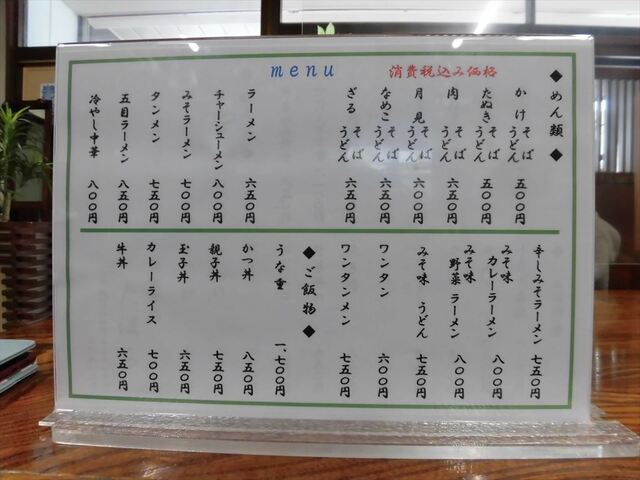 menu
消費税込み価格
◆ めん類 ◆
かけ そば うどん 五〇〇円
たぬき そば うどん 五〇〇円
肉 そば うどん 六五〇円
月見 そば うどん 六〇〇円
なめこ そば うどん 六五〇円
ざる そば うどん 六五〇円
ラーメン 六五〇円
チャーシューメン 八〇〇円
みそラーメン 七〇〇円
タンメン 七五〇円
五目ラーメン 八五〇円
冷やし中華 八〇〇円
辛しみそラーメン 七五〇円
みそ味 カレーラーメン 八〇〇円
みそ味 野菜ラーメン 八〇〇円
みそ味 うどん 七五〇円
ワンタン 六〇〇円
ワンタンメン 七五〇円
◆ ご飯物 ◆
うな重 一、七〇〇円
かつ丼 八五〇円
親子丼 七五〇円
玉子丼 六五〇円
カレーライス 七〇〇円
牛丼 六五〇円